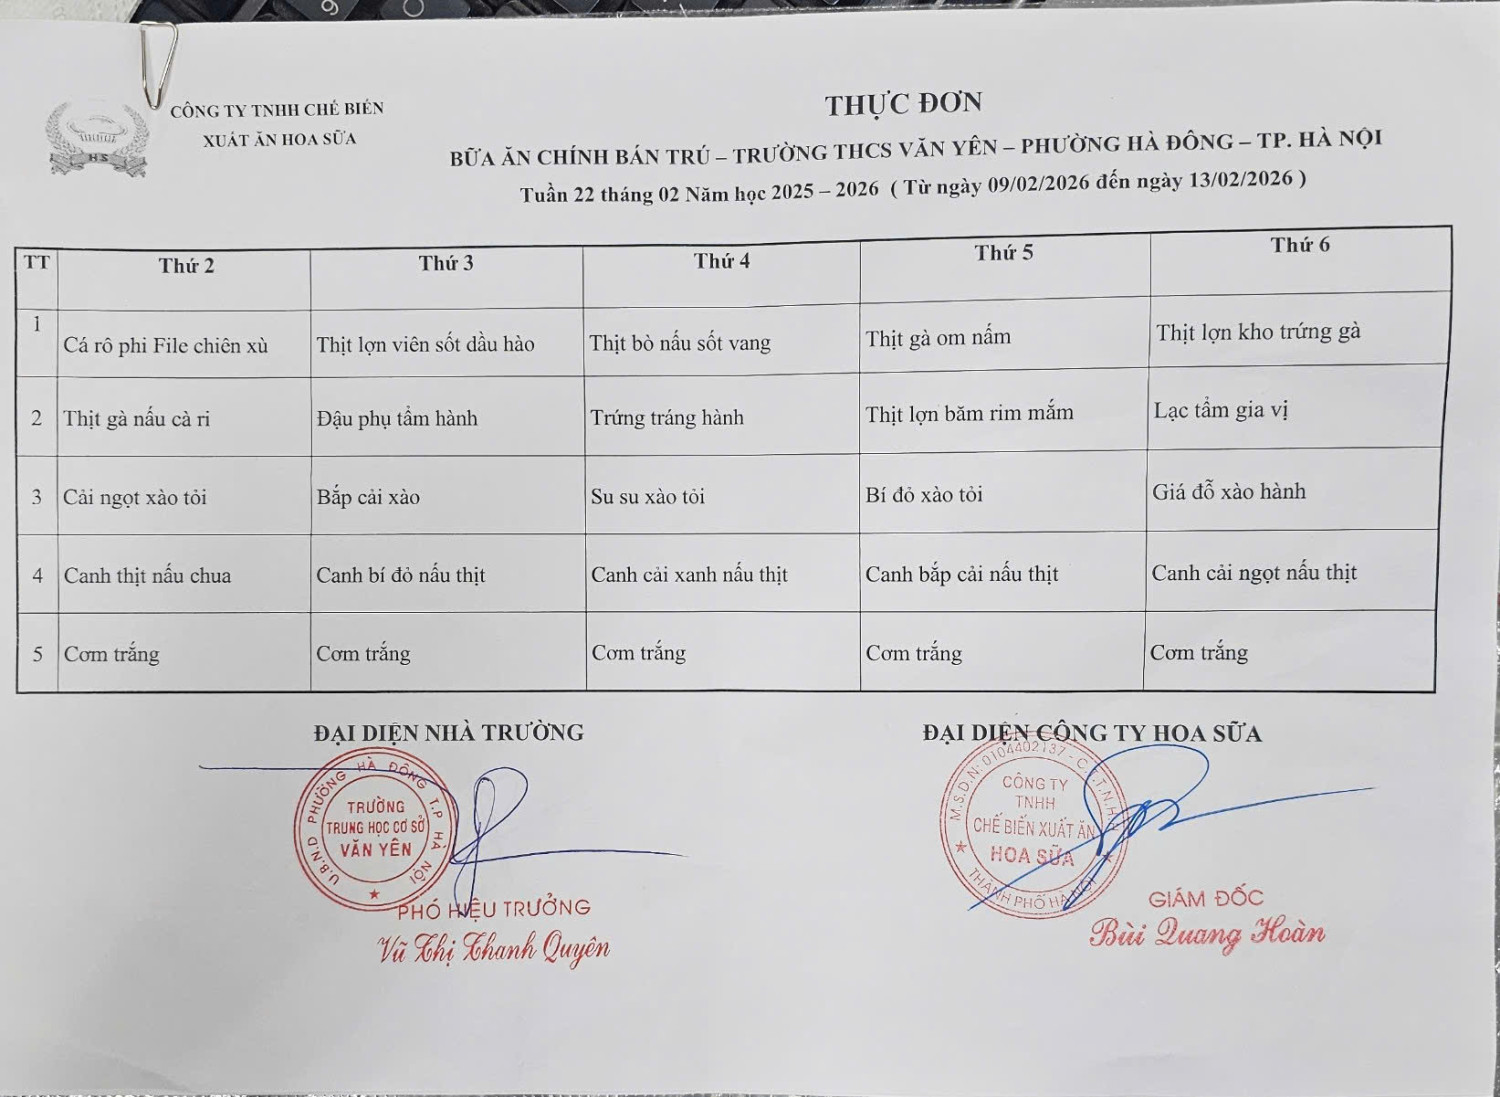 CÔNG TY TNHH CHẾ BIẾN
XUẤT ĂN HOA SỮA
HS
THỰC ĐƠN
BỮA ĂN CHÍNH BÁN TRÚ – TRƯỜNG THCS VĂN YÊN – PHƯỜNG HÀ ĐÔNG – TP. HÀ NỘI
Tuần 22 tháng 02 Năm học 2025 – 2026 ( Từ ngày 09/02/2026 đến ngày 13/02/2026 )
TT Thứ 2 Thứ 3 Thứ 4 Thứ 5 Thứ 6
1 Cá rô phi File chiên xù Thịt lợn viên sốt dầu hào Thịt bò nấu sốt vang Thịt gà om nấm Thịt lợn kho trứng gà
2 Thịt gà nấu cà ri Đậu phụ tẩm hành Trứng tráng hành Thịt lợn băm rim mắm Lạc tẩm gia vị
3 Cải ngọt xào tỏi Bắp cải xào Su su xào tỏi Bí đỏ xào tỏi Giá đỗ xào hành
4 Canh thịt nấu chua Canh bí đỏ nấu thịt Canh cải xanh nấu thịt Canh bắp cải nấu thịt Canh cải ngọt nấu thịt
5 Cơm trắng Cơm trắng Cơm trắng Cơm trắng Cơm trắng
ĐẠI DIỆN NHÀ TRƯỜNG
U.B.N.D PHƯỜNG HÀ ĐÔNG T.P HÀ NỘI
TRƯỜNG
TRUNG HỌC CƠ SỞ
VĂN YÊN
PHÓ HIỆU TRƯỞNG
Vũ Thị Thanh Quyên
ĐẠI DIỆN CÔNG TY HOA SỮA
M.S.D.N: 0104402137 - C.T.T.N.H.H
CÔNG TY
TNHH
CHẾ BIẾN XUẤT ĂN
HOA SỮA
THÀNH PHỐ HÀ NỘI
GIÁM ĐỐC
Bùi Quang Hoàn